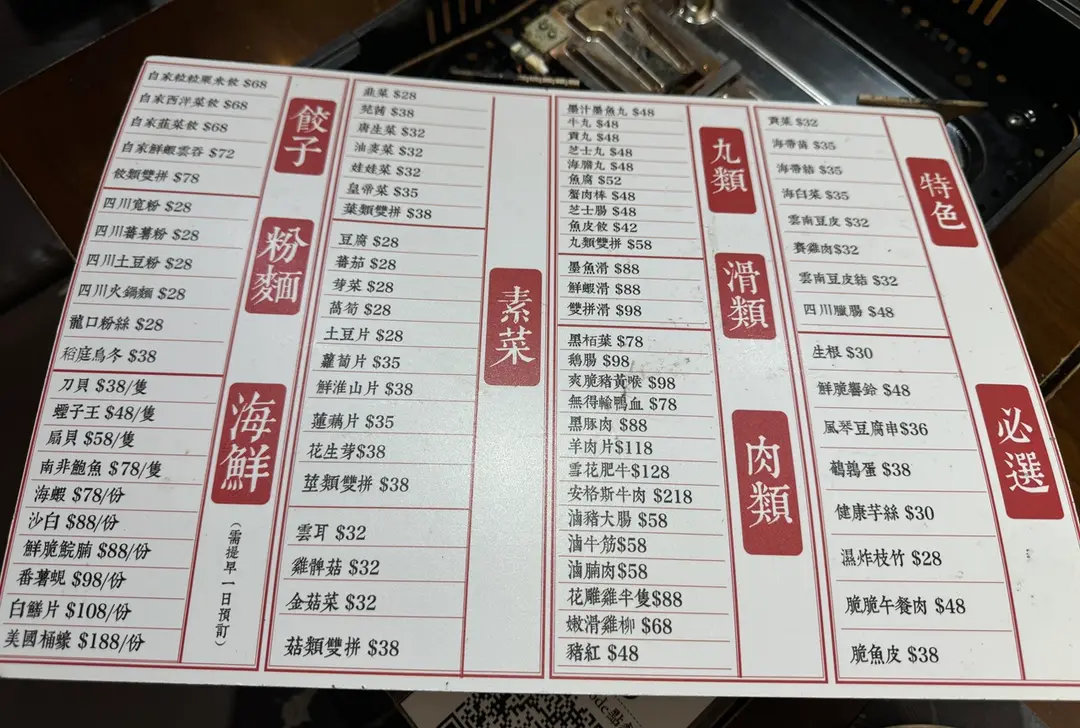 餃子
自家粒粒粟米餃 $68
自家西洋菜餃 $68
自家韮菜餃 $68
自家鮮蝦雲吞 $72
餃類雙拼 $78
粉麵
四川寬粉 $28
四川蕃薯粉 $28
四川土豆粉 $28
四川火鍋麵 $28
龍口粉絲 $28
稻庭烏冬 $38
海鮮
(需提早一日預訂)
刀貝 $38/隻
蟶子王 $48/隻
扇貝 $58/隻
南非鮑魚 $78/隻
海蝦 $78/份
沙白 $88/份
鮮脆鯇腩 $88/份
番薯蜆 $98/份
白鱔片 $108/份
美國桶蠔 $188/份
素菜
韭菜 $28
芫茜 $38
唐生菜 $32
油麥菜 $32
娃娃菜 $32
皇帝菜 $35
葉類雙拼 $38
豆腐 $28
蕃茄 $28
芽菜 $28
萵筍 $28
土豆片 $28
蘿蔔片 $35
鮮淮山片 $38
蓮藕片 $35
花生芽$38
莖類雙拼 $38
雲耳 $32
雞髀菇 $32
金菇菜 $32
菇類雙拼 $38
丸類
墨汁墨魚丸 $48
牛丸 $48
貢丸 $48
芝士丸 $48
海膽丸 $48
魚腐 $52
蟹肉棒 $48
芝士腸 $48
魚皮餃 $42
丸類雙拼 $58
滑類
墨魚滑 $88
鮮蝦滑 $88
雙拼滑 $98
肉類
黑栢葉 $78
鵝腸 $98
爽脆豬黃喉 $98
無得輸鴨血 $78
黑豚肉 $88
羊肉片$118
雪花肥牛$128
安格斯牛肉 $218
滷豬大腸 $58
滷牛筋$58
滷腩肉$58
花雕雞半隻$88
嫩滑雞柳 $68
豬紅 $48
特色
貢菜 $32
海帶苗 $35
海帶結 $35
海白菜 $35
雲南豆皮 $32
賽雞肉$32
雲南豆皮結 $32
四川臘腸 $48
必選
生根 $30
鮮脆響鈴 $48
風琴豆腐串$36
鵪鶉蛋 $38
健康芋絲 $30
濕炸枝竹 $28
脆脆午餐肉 $48
脆魚皮 $38